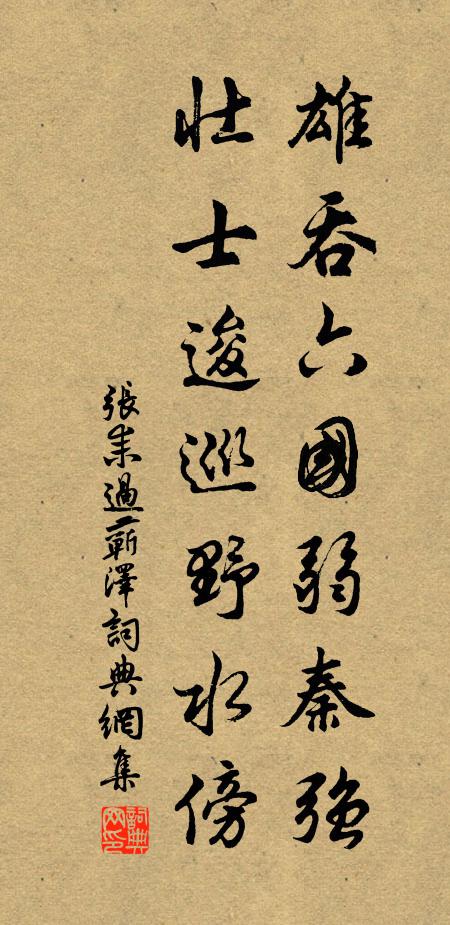 雄吞六國弱秦強
壯士逡巡野水傍
張耒過蘄澤詞典網集
詞典網印